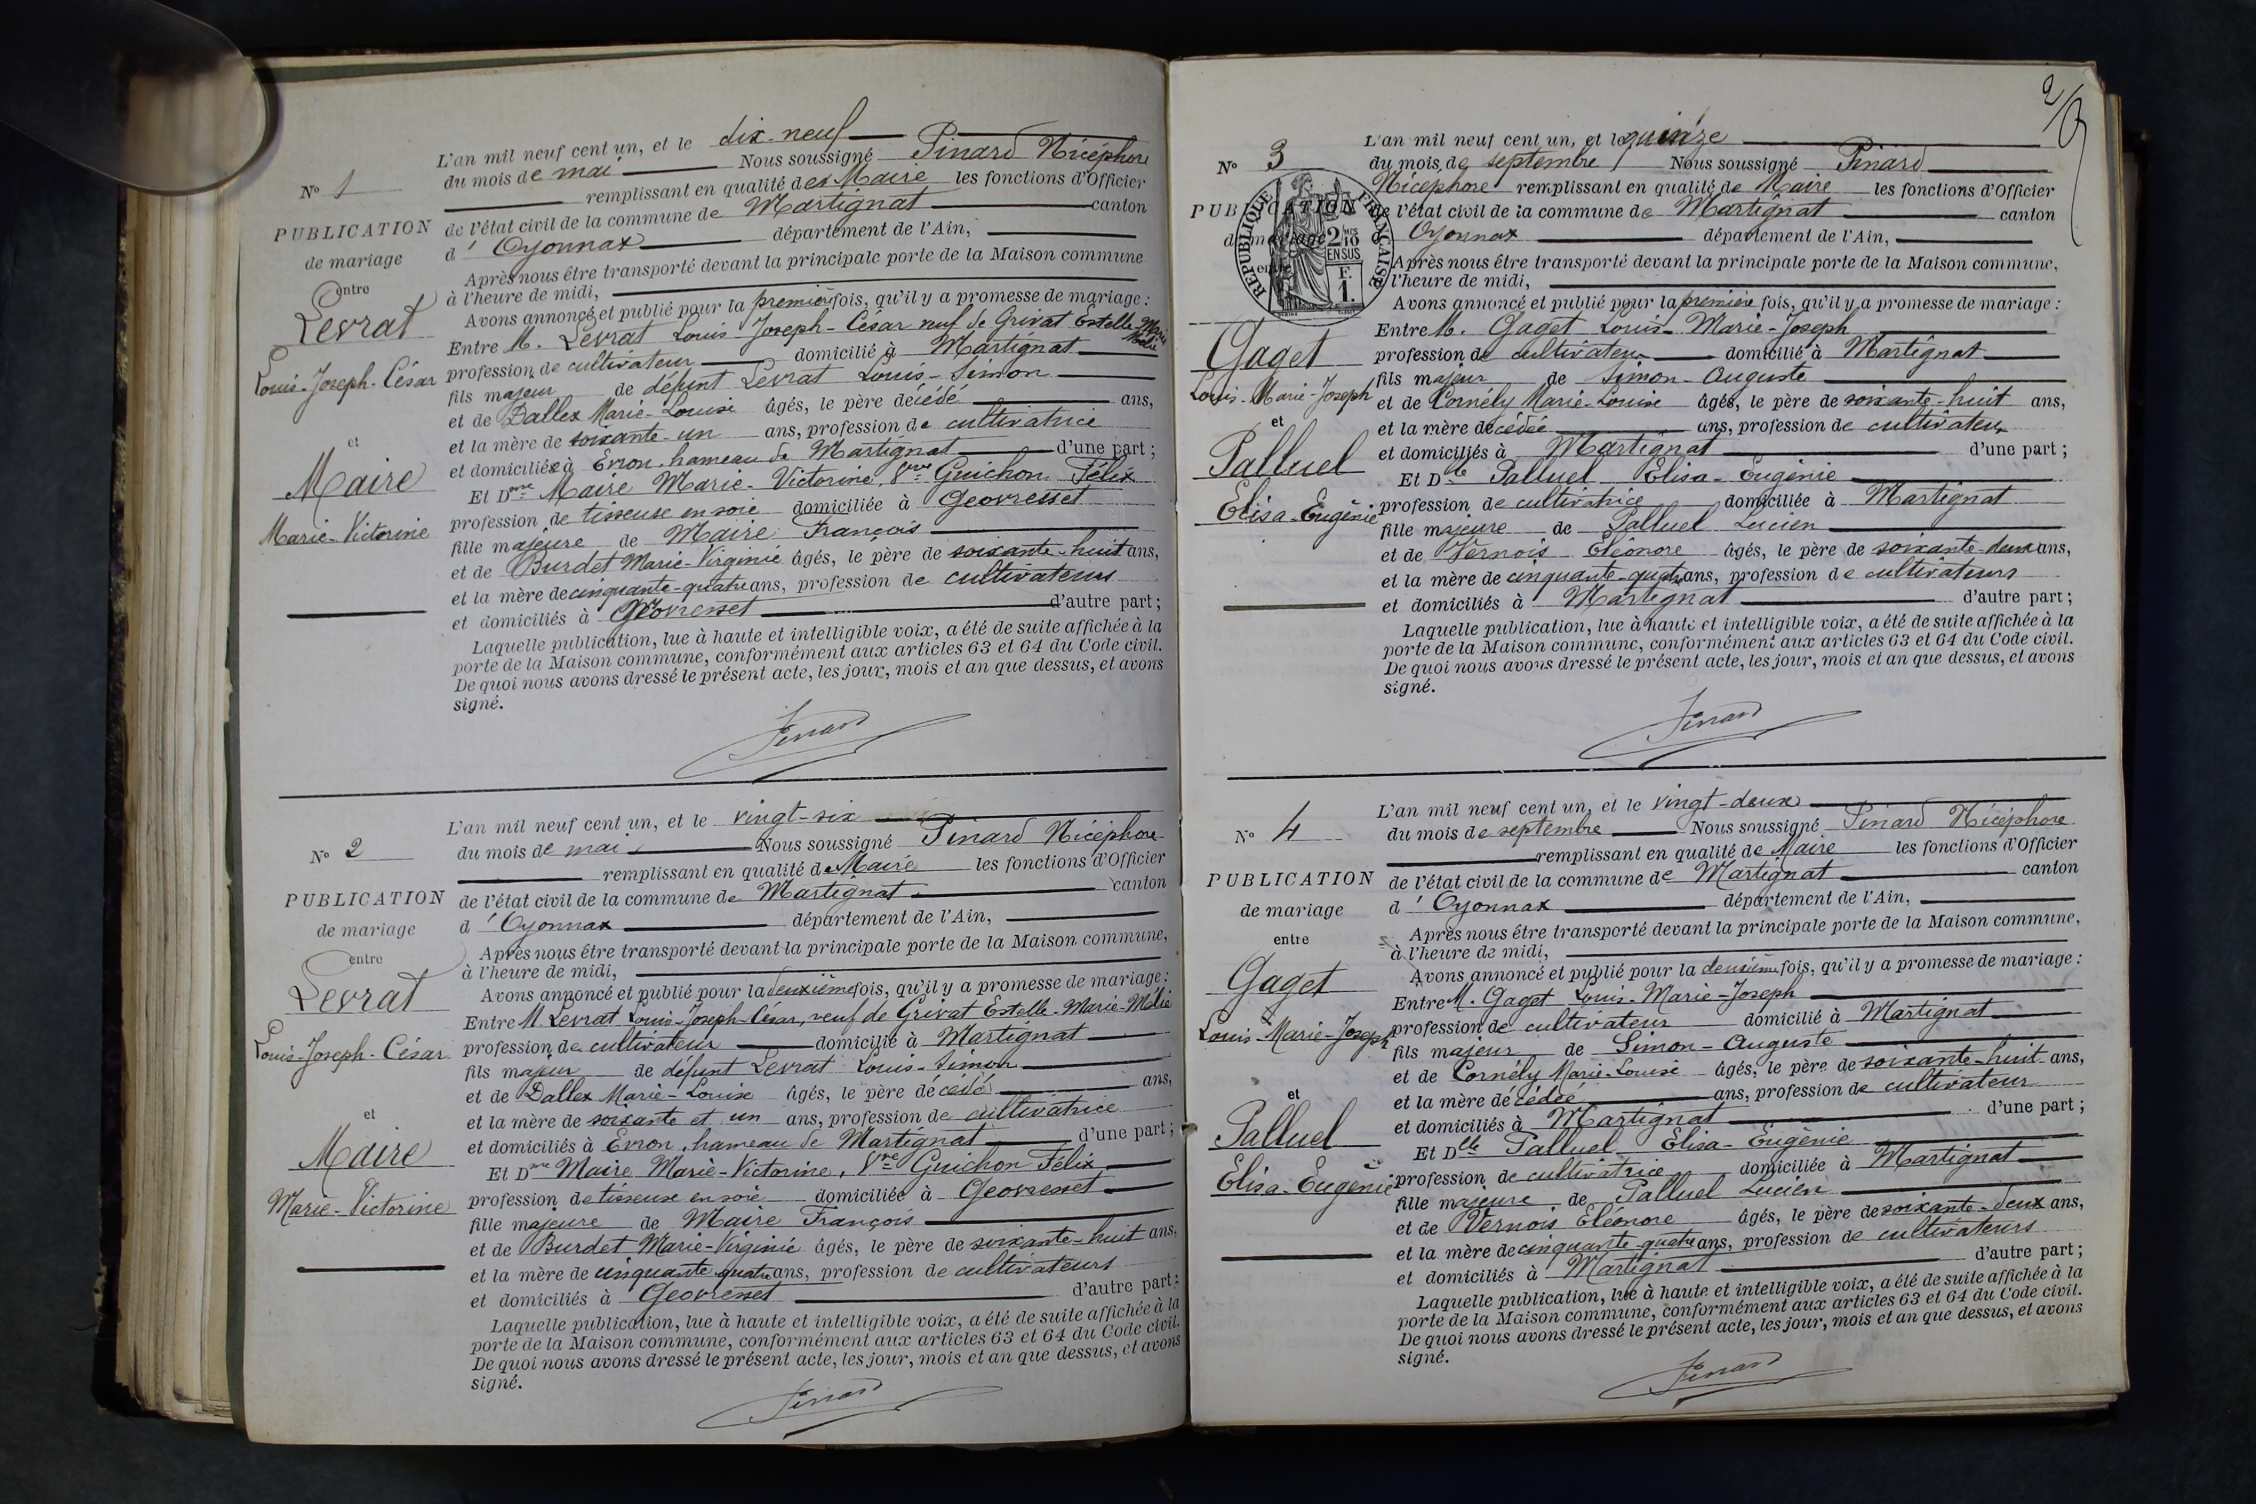 N° 1
PUBLICATION
de mariage
entre
Levrat
Louis-Joseph-César
et
Maire
Marie-Victorine
L'an mil neuf cent un, et le dix-neuf
du mois de mai Nous soussigné Pinard Nicéphore
remplissant en qualité de Maire les fonctions d'Officier
de l'état civil de la commune de Martignat canton
d'Oyonnax département de l'Ain,
Après nous être transporté devant la principale porte de la Maison commune
à l'heure de midi,
Avons annoncé et publié pour la première fois, qu'il y a promesse de mariage :
Entre M. Levrat Louis-Joseph-César veuf de Grivat Estelle Marie
profession de cultivateur domicilié à Martignat
fils majeur de défunt Levrat Louis-Simon
et de Dallex Marie-Louise âgés, le père décédé ans,
et la mère de soixante-un ans, profession de cultivatrice
et domiciliés à Evron, hameau de Martignat d'une part ;
Et Dme Maire Marie-Victorine, Vve Guichon Félix
profession de tisseuse en soie domiciliée à Geovresset
fille majeure de Maire François
et de Burdet Marie-Virginie âgés, le père de soixante-huit ans,
et la mère de cinquante-quatre ans, profession de cultivateurs
et domiciliés à Geovresset d'autre part ;
Laquelle publication, lue à haute et intelligible voix, a été de suite affichée à la
porte de la Maison commune, conformément aux articles 63 et 64 du Code civil.
De quoi nous avons dressé le présent acte, les jour, mois et an que dessus, et avons
signé.
Pinard
N° 2
PUBLICATION
de mariage
entre
Levrat
Louis-Joseph-César
et
Maire
Marie-Victorine
L'an mil neuf cent un, et le vingt-six
du mois de mai Nous soussigné Pinard Nicéphore
remplissant en qualité de Maire les fonctions d'Officier
de l'état civil de la commune de Martignat canton
d'Oyonnax département de l'Ain,
Après nous être transporté devant la principale porte de la Maison commune,
à l'heure de midi,
Avons annoncé et publié pour la deuxième fois, qu'il y a promesse de mariage :
Entre M. Levrat Louis-Joseph-César, veuf de Grivat Estelle-Marie-Mélie
profession de cultivateur domicilié à Martignat
fils majeur de défunt Levrat Louis-Simon
et de Dallex Marie-Louise âgés, le père décédé ans,
et la mère de soixante et un ans, profession de cultivatrice
et domiciliés à Evron, hameau de Martignat d'une part ;
Et Dme Maire Marie-Victorine, Vve Guichon Félix
profession de tisseuse en soie domiciliée à Geovresset
fille majeure de Maire François
et de Burdet Marie-Virginie âgés, le père de soixante-huit ans,
et la mère de cinquante quatre ans, profession de cultivateurs
et domiciliés à Geovresset d'autre part ;
Laquelle publication, lue à haute et intelligible voix, a été de suite affichée à la
porte de la Maison commune, conformément aux articles 63 et 64 du Code civil.
De quoi nous avons dressé le présent acte, les jour, mois et an que dessus, et avons
signé.
Pinard
2
N° 3
PUBLICATION
de mariage
entre
REPUBLIQUE FRANÇAISE
2/10 EN SUS
F. 1.
Gaget
Louis-Marie-Joseph
et
Palluel
Elisa-Eugénie
L'an mil neuf cent un, et le quinze
du mois de septembre Nous soussigné Pinard
Nicéphore remplissant en qualité de Maire les fonctions d'Officier
de l'état civil de la commune de Martignat canton
d'Oyonnax département de l'Ain,
Après nous être transporté devant la principale porte de la Maison commune,
à l'heure de midi,
Avons annoncé et publié pour la première fois, qu'il y a promesse de mariage :
Entre M. Gaget Louis-Marie-Joseph
profession de cultivateur domicilié à Martignat
fils majeur de Simon-Auguste
et de Cornély Marie-Louise âgés, le père de soixante-huit ans,
et la mère décédée ans, profession de cultivateur
et domiciliés à Martignat d'une part ;
Et Dlle Palluel Elisa-Eugénie
profession de cultivatrice domiciliée à Martignat
fille majeure de Palluel Lucien
et de Vernois Eléonore âgés, le père de soixante-deux ans,
et la mère de cinquante-quatre ans, profession de cultivateurs
et domiciliés à Martignat d'autre part ;
Laquelle publication, lue à haute et intelligible voix, a été de suite affichée à la
porte de la Maison commune, conformément aux articles 63 et 64 du Code civil.
De quoi nous avons dressé le présent acte, les jour, mois et an que dessus, et avons
signé.
Pinard
N° 4
PUBLICATION
de mariage
entre
Gaget
Louis-Marie-Joseph
et
Palluel
Elisa-Eugénie
L'an mil neuf cent un, et le vingt-deux
du mois de septembre Nous soussigné Pinard Nicéphore
remplissant en qualité de Maire les fonctions d'Officier
de l'état civil de la commune de Martignat canton
d'Oyonnax département de l'Ain,
Après nous être transporté devant la principale porte de la Maison commune,
à l'heure de midi,
Avons annoncé et publié pour la deuxième fois, qu'il y a promesse de mariage :
Entre M. Gaget Louis-Marie-Joseph
profession de cultivateur domicilié à Martignat
fils majeur de Simon-Auguste
et de Cornély Marie-Louise âgés, le père de soixante-huit ans,
et la mère décédée ans, profession de cultivateur
et domiciliés à Martignat d'une part ;
Et Dlle Palluel Elisa-Eugénie
profession de cultivatrice domiciliée à Martignat
fille majeure de Palluel Lucien
et de Vernois Eléonore âgés, le père de soixante-deux ans,
et la mère de cinquante-quatre ans, profession de cultivateurs
et domiciliés à Martignat d'autre part ;
Laquelle publication, lue à haute et intelligible voix, a été de suite affichée à la
porte de la Maison commune, conformément aux articles 63 et 64 du Code civil.
De quoi nous avons dressé le présent acte, les jour, mois et an que dessus, et avons
signé.
Pinard